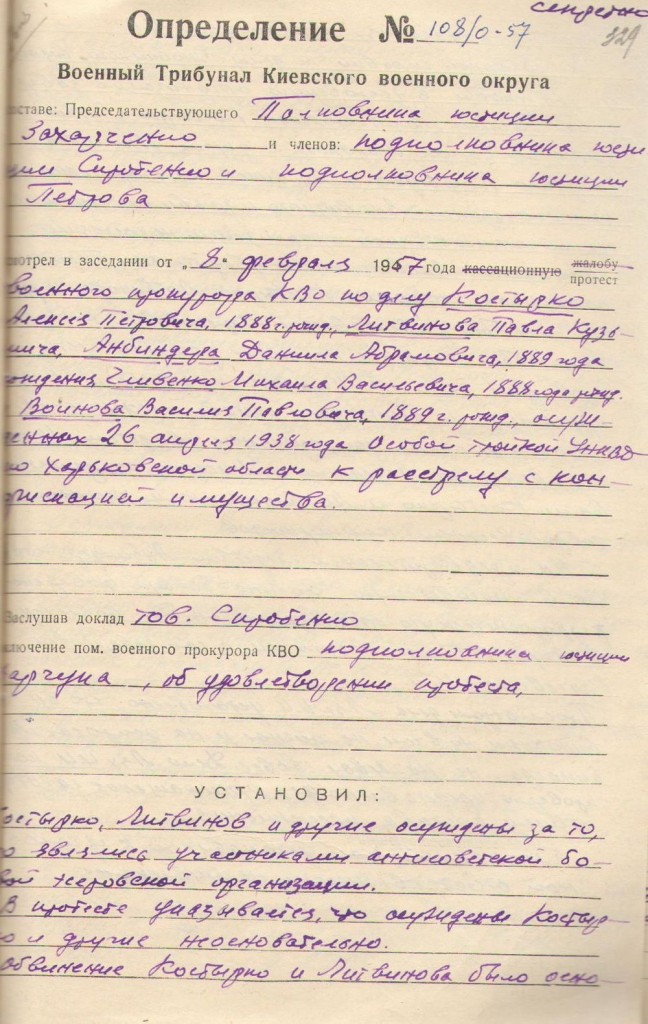 секретно
Определение № 108/0-57
329
Военный Трибунал Киевского военного округа
оставе: Председательствующего Полковника юстиции
Захарченко и членов: подполковника юсти
ции Скробенко и подполковника юстиции
Петрова
мотрел в заседании от „8“ февраля 1957 года кассационную жалобу
протест
военного прокурора КВО по делу Костырко
Алексея Петровича, 1888 г. рожд., Литвинова Павла Кузь-
мича, Анбиндера Даниила Абрамовича, 1889 года
рождения Гливенко Михаила Васильевича, 1888 года рожд.
Воинова Василия Павловича, 1889 г. рожд., осуж-
денных 26 апреля 1938 года Особой тройкой УНКВД
по Харьковской области к расстрелу с кон-
фискацией имущества.
Заслушав доклад тов. Скробенко
ключение пом. военного прокурора КВО подполковника юстиции
арчука, об удовлетворении протеста,
УСТАНОВИЛ:
Костырко, Литвинов и другие осуждены за то,
о являлись участниками антисоветской бо-
вой эсеровской организации.
В протесте указывается, что осуждены Костыр-
о и другие неосновательно.
Обвинение Костырко и Литвинова было осно-